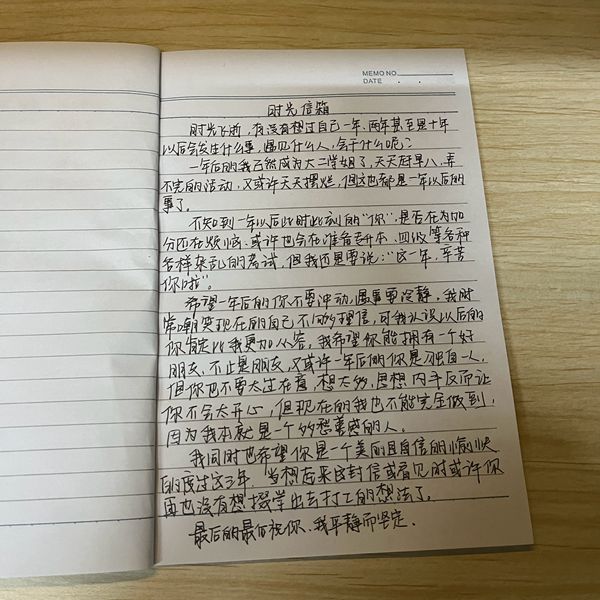 MEMO NO.
DATE . .
时光信箱
时光飞逝，我没有想过自己一年、两年甚至是十年
以后会发生什么事，遇见什么人，会干什么呢？
一年后的我已然成为大二学姐了，天天赶早八，弄
不完的活动，又或许天天摆烂，但这也都是一年以后的
事了。
不知到一年以后此时此刻的“你”，是否在为加
分还在烦恼，或许也会在准备专升本、四级等各种
各样杂乱的考试，但我还是要说：“这一年，辛苦
你啦”。
希望一年后的你不要冲动，遇事要冷静，我时
常嘲笑现在的自己不够理信，可我认识以后的
你肯定比我更加从容。我希望你能拥有一个好
朋友，不止是朋友，又或许一年后的你是独自一人，
但你也不要太过在意，想太多，思想内斗反而让
你不会太开心，但现在的我也不能完全做到，
因为我本就是一个多愁善感的人。
我同时也希望你是一个美丽且自信的愉快
的度过这3年，当想起来这封信或看见时或许你
再也没有想辍学出去打工的想法了。
最后的最后祝你、我平静而坚定.